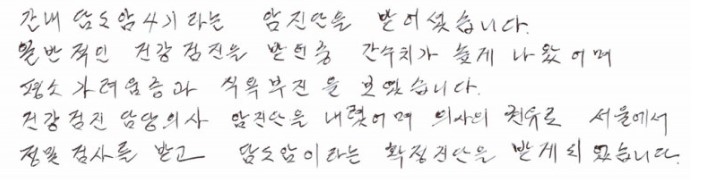 간내 담도암4기라는 암진단을 받어셨습니다.
일반적인 건강검진을 받던중 간수치가 높게 나왔어며
평소 가려움증과 식욕부진을 보였습니다.
건강검진 담당의사 암진단을 내렸어며 의사의 권유로 서울에서
정밀검사를 받고 담도암이라는 확정진단을 받게되었습니다.